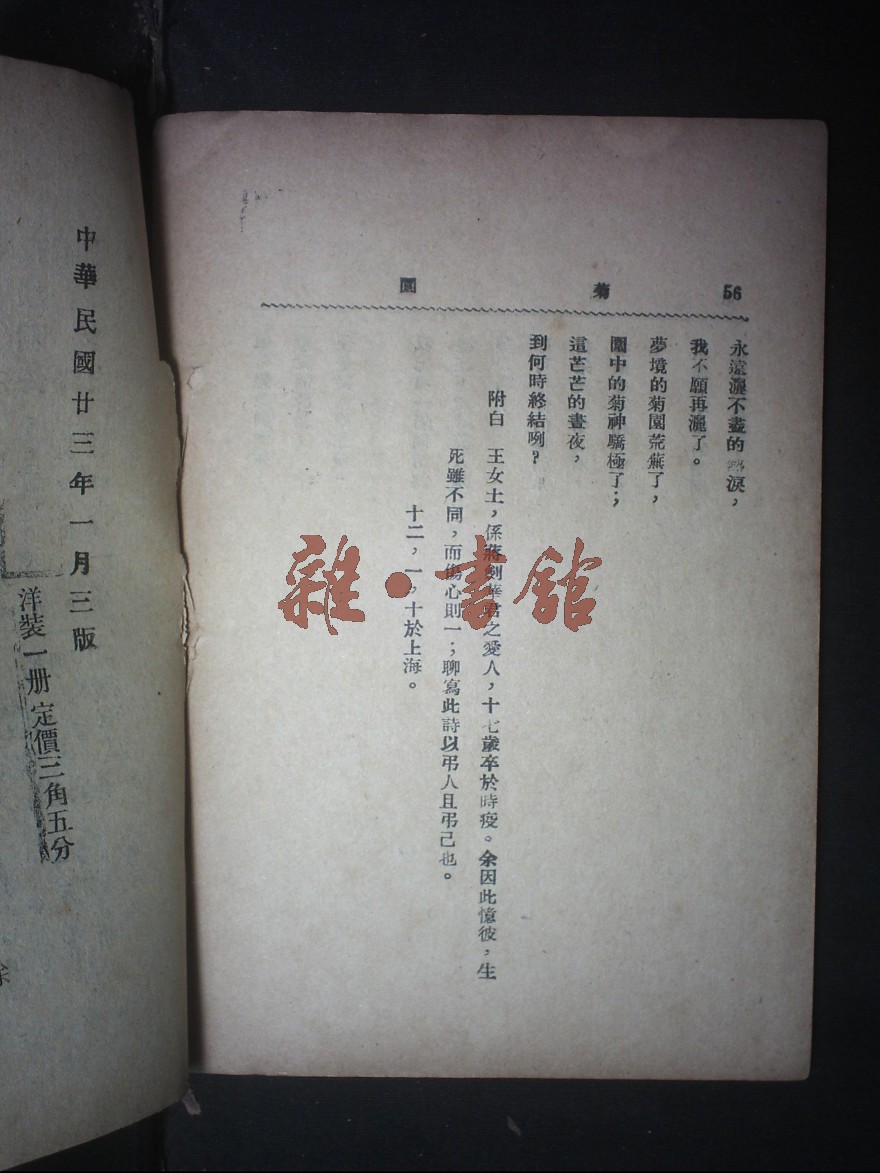 56 菊園
永遠灑不盡的淚,
我不願再灑了。
夢境的菊園荒蕪了,
園中的菊神驕極了;
這芒芒的晝夜,
到何時終結咧?
附白 王女士,係蔣劍華君之愛人,十七歲卒於時疫。余因此憶彼,生
死雖不同,而傷心則一;聊寫此詩以弔人且弔己也。
十二,一,十於上海。
中華民國廿三年一月三版
洋裝一册 定價三角五分
雜·書館